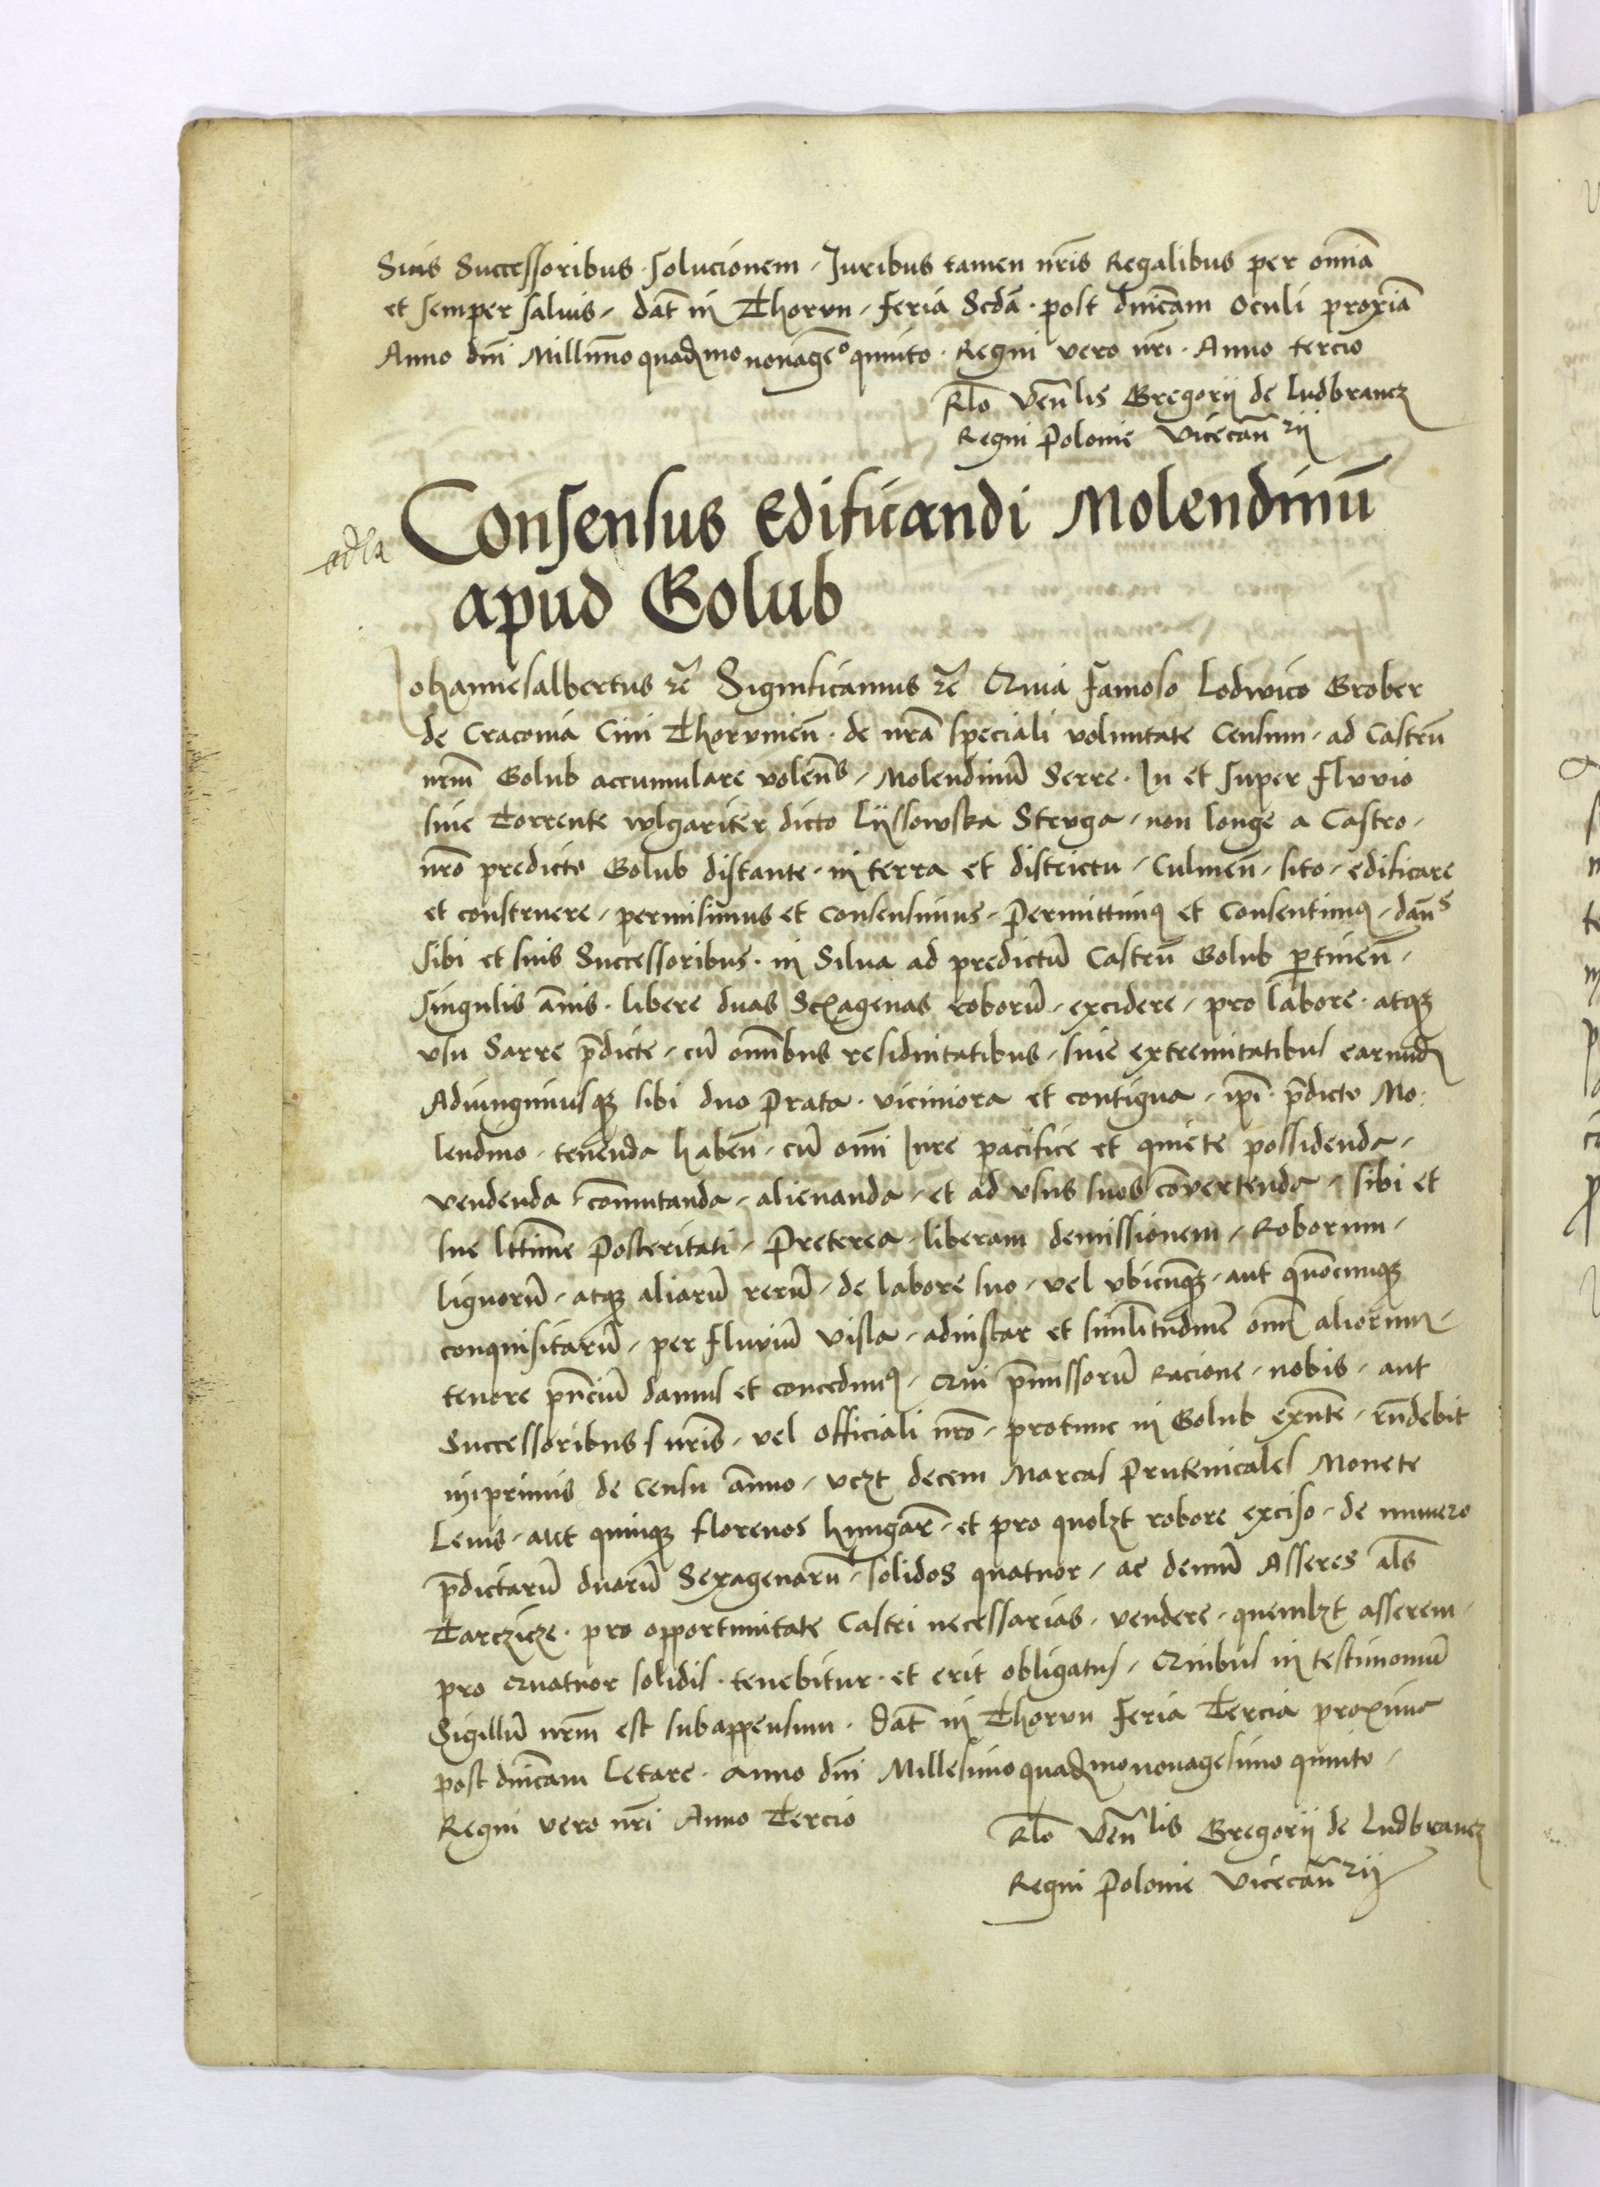 Suis Successoribus · solucionem · Juribus tamen nr̃is Regalibus per omnia
et semper saluis / dat̃ in Thorvn / feria Scdã · post dnĩcam Oculi proxiã
Anno dnĩ Millmõ quadr̃mo nonagẽo quinto · Regni vero nrĩ · Anno tercio
Rlo Venlis Gregorij de Ludbrancz
Regni Polonie Vicecan̄rij
Consensus Edificandi Molendinū
apud Golub
Johannesalbertus rc̃ Significamus rc̃ Quia famoso Lodwico Grober
de Craconia Ciui Thorvnien̄ · de nrã speciali voluntate Censum · ad Castrū
nrm̃ Golub accumulare volen̄s / Molendinū Serre · In et super fluvio
siue Torrente vvlgariter dicto Lÿssowska Struga / non longe a Castro /
nrõ predicto Golub distante · in terra et districtu / Culmen̄ / sito / edificare
et construere / permisimus et consensimus / Permittimꝰ et Consentimꝰ / dan̄s
sibi et suis Successoribus · in Silua ad predictū Castrū Golub ptinen̄ /
singulis annis · libere duas Sexagenas roborū / excidere / pro labore · atqꝫ
vsu Sarre p̄dicte / cū omībus residuitatibus / siue extremitatibus earundꝫ
Adiungimusqꝫ sibi duo Prata · viciniora et contigua / ipĩ · p̄dicto Mo:
lendino · tenenda haben̄ / cū omĩ Iure pacifice et quiete possidenda /
vendenda / comutanda / alienanda / et ad vsus suos cōvertenda / sibi et
sue lttime Posteritati / Preterea / liberam demissionem / Roborum /
lignorū / atqꝫ aliarū rerū / de labore suo / vel vbicūqꝫ / aut quocunqꝫ
conquisitarū / per fluuiū Visla / adinstar et similitudinē omĩ aliorum /
tenore pn̄ciū damus et concedimꝰ / Qui pmissorū Racione / nobis / aut
Successoribus nr̃is / vel Officiali nrõ / protunc in Golub exn̄te / rn̄debit
inprimis de Censu annuo / vczt decem Marcas Prutenicales Monete
Leuis / aut quinqꝫ florenos hungar̃ / et pro quolzt robore exciso / de numero
p̄dictarū duarū Sexagenarū / solidos quatuor / ac demū Asseres als̃
Tarczicze · pro opportunitate Castri necessarias / vendere / quemlzt asserem /
pro Quatuor solidis · tenebitur · et erit obligatus / Quibus in testimoniū
Sigillū nrm̃ est subappensum · Dat̃ in Thorvn feria Tercia proxima
post dnĩcam Letare · Anno dnĩ Millesimo quadr̃mo nonagesimo quinto /
Regni vero nrĩ Anno Tercio
Rlo Venlis Gregorij de Ludbrancz
Regni Polonie Vicecan̄rij